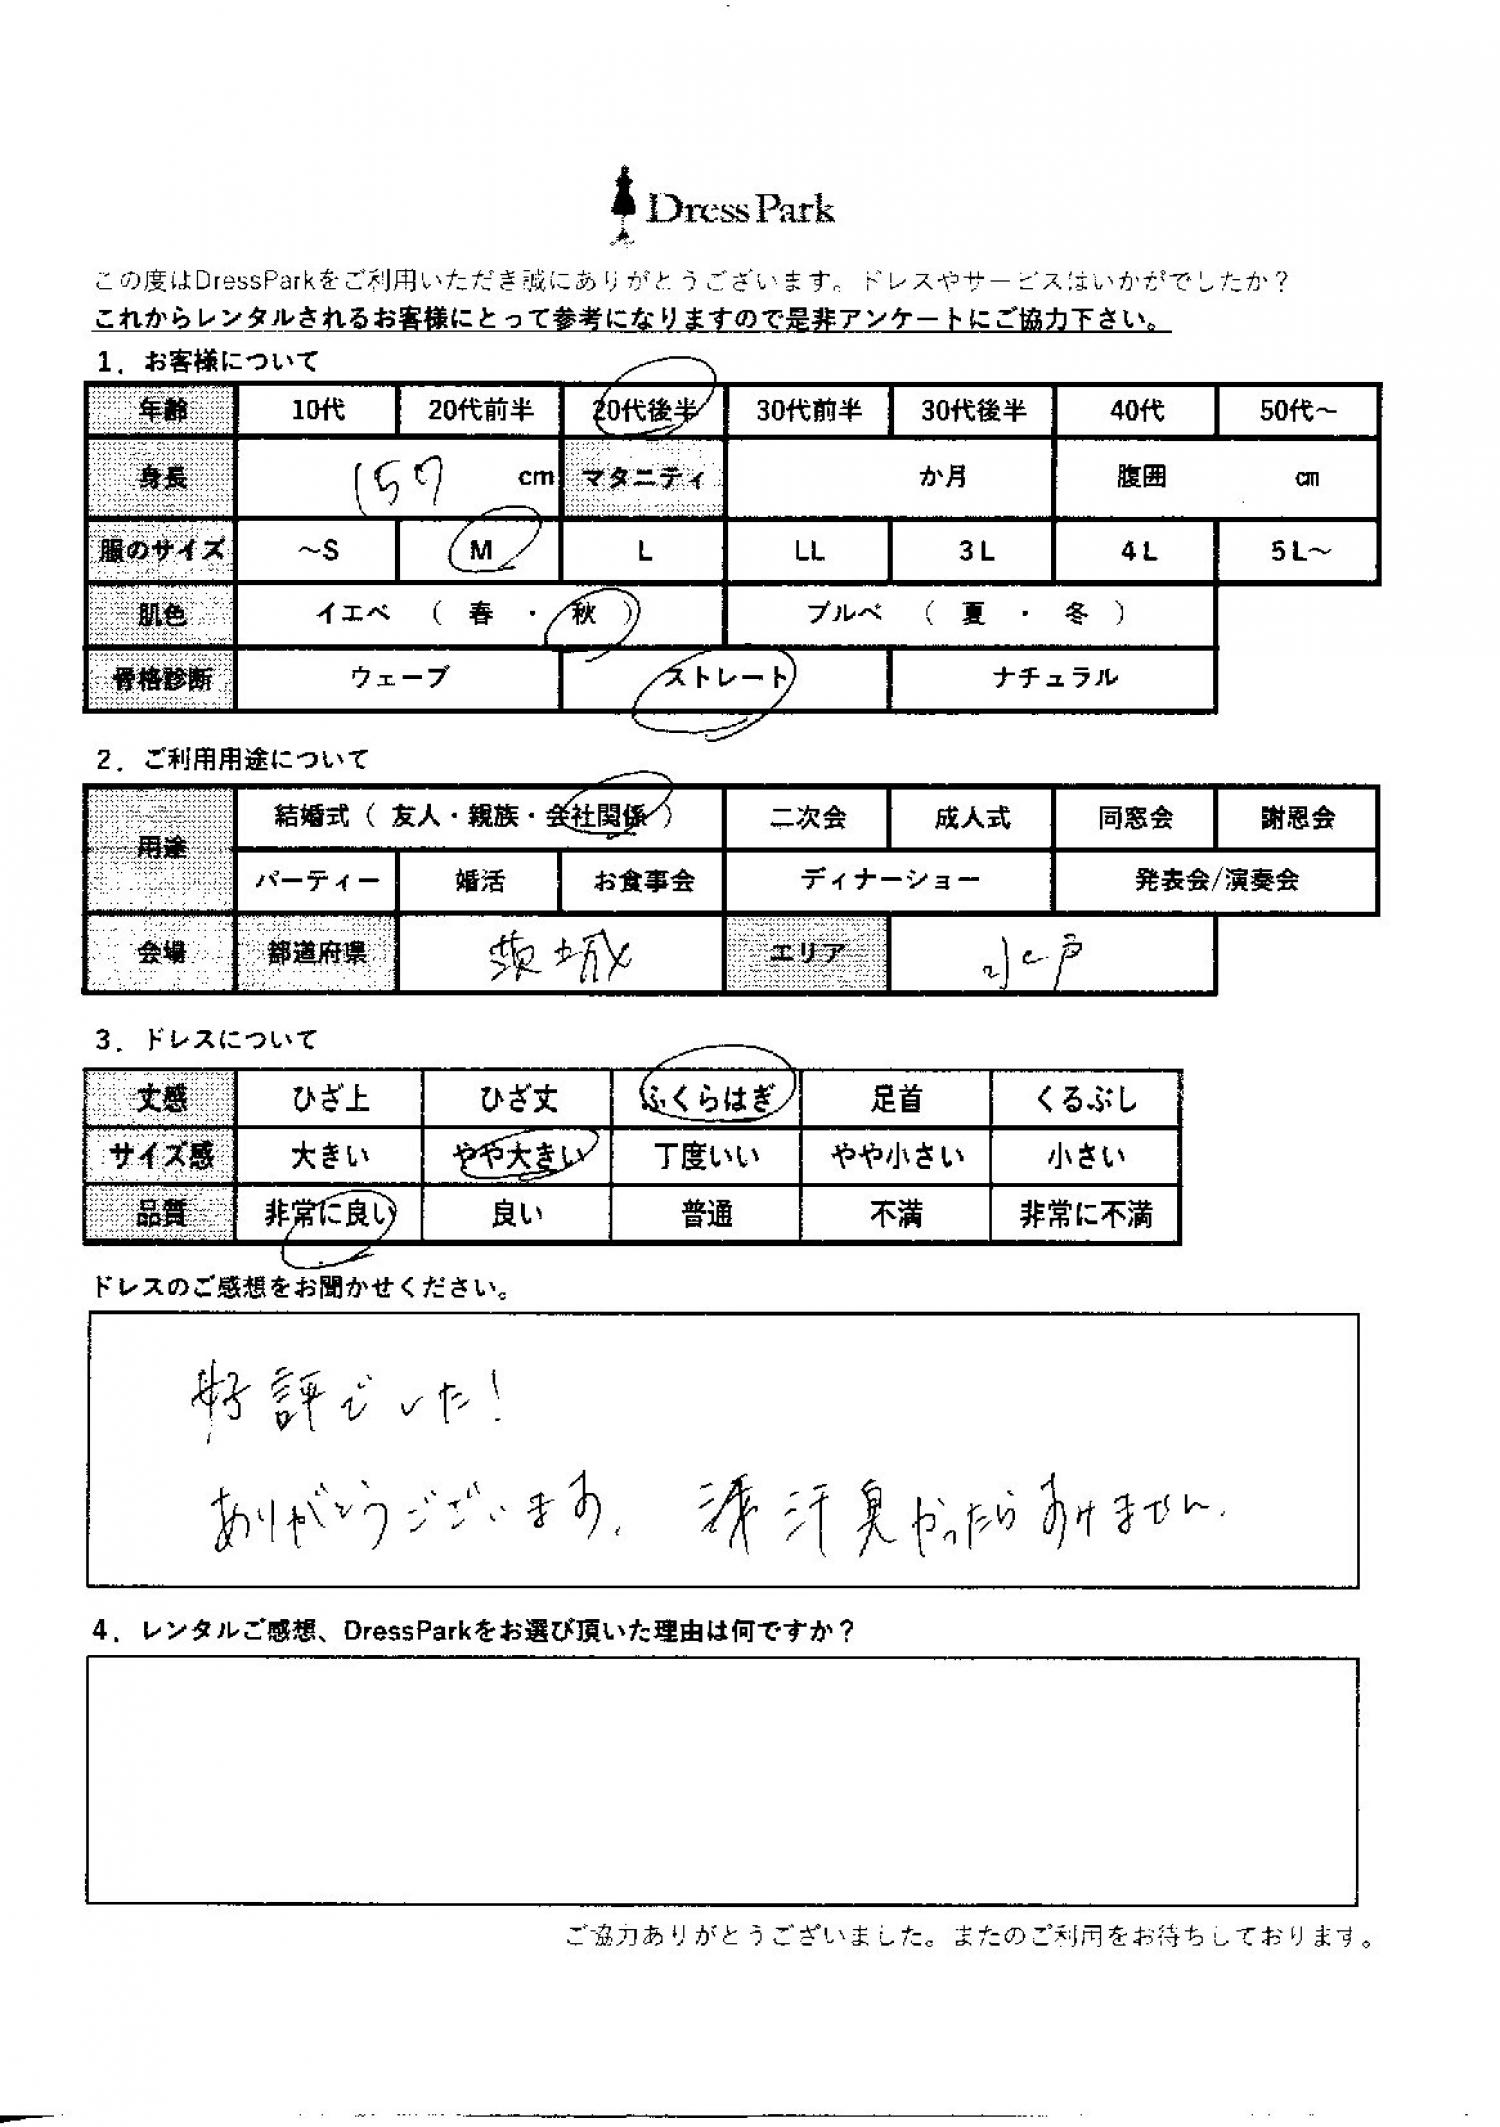 DressPark
この度はDressParkをご利用いただき誠にありがとうございます。ドレスやサービスはいかがでしたか？
これからレンタルされるお客様にとって参考になりますので是非アンケートにご協力下さい。
1．お客様について
年齢 10代 20代前半 20代後半 30代前半 30代後半 40代 50代～
身長 157 cm マタニティ か月 腹囲 cm
服のサイズ ～S M L LL 3L 4L 5L～
肌色 イエベ （ 春 ・ 秋 ） ブルベ （ 夏 ・ 冬 ）
骨格診断 ウェーブ ストレート ナチュラル
2．ご利用用途について
用途 結婚式（ 友人・親族・会社関係 ） 二次会 成人式 同窓会 謝恩会
パーティー 婚活 お食事会 ディナーショー 発表会/演奏会
会場 都道府県 茨城 エリア 水戸
3．ドレスについて
丈感 ひざ上 ひざ丈 ふくらはぎ 足首 くるぶし
サイズ感 大きい やや大きい 丁度いい やや小さい 小さい
品質 非常に良い 良い 普通 不満 非常に不満
ドレスのご感想をお聞かせください。
好評でした！
ありがとうございます。 汗臭かったらすみません。
4．レンタルご感想、DressParkをお選び頂いた理由は何ですか？
ご協力ありがとうございました。またのご利用をお待ちしております。